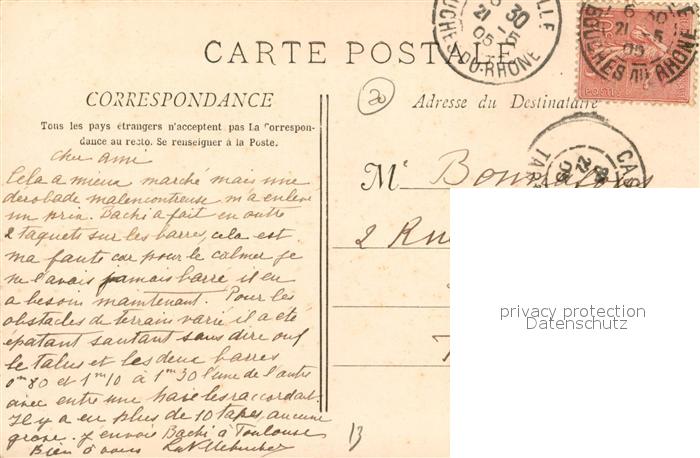 CARTE POSTALE
CORRESPONDANCE
Tous les pays étrangers n'acceptent pas La Correspon-
dance au recto. Se renseigner à la Poste.
cher ami
Cela a mieux marché mais une
derobade malencontreuse m'a enlevé
un prix. Bachi a fait en outre
2 taquets sur les barres, cela est
ma faute car pour le calmer je
ne l'avais jamais barré il en
a besoin maintenant. Pour les
obstacles de terrain varié il a été
épatant sautant sans dire ouf
le talus et les deux barres
0m80 et 1m10 à 1m30 l'une de l'autre
avec entre une haie les raccordant.
Il y a eu plus de 10 tapes, aucune
grave. J'envoie Bachi à Toulouse
Bien à vous
13
20
Adresse du Destinataire
Mr
2 Rue
T
6 30
21 -5
05
BOUCHES-DU-RHONE
6 30
21 -5
05
BOUCHES DU RHONE
POSTE
CAS
TAR
22
05
privacy protection
Datenschutz